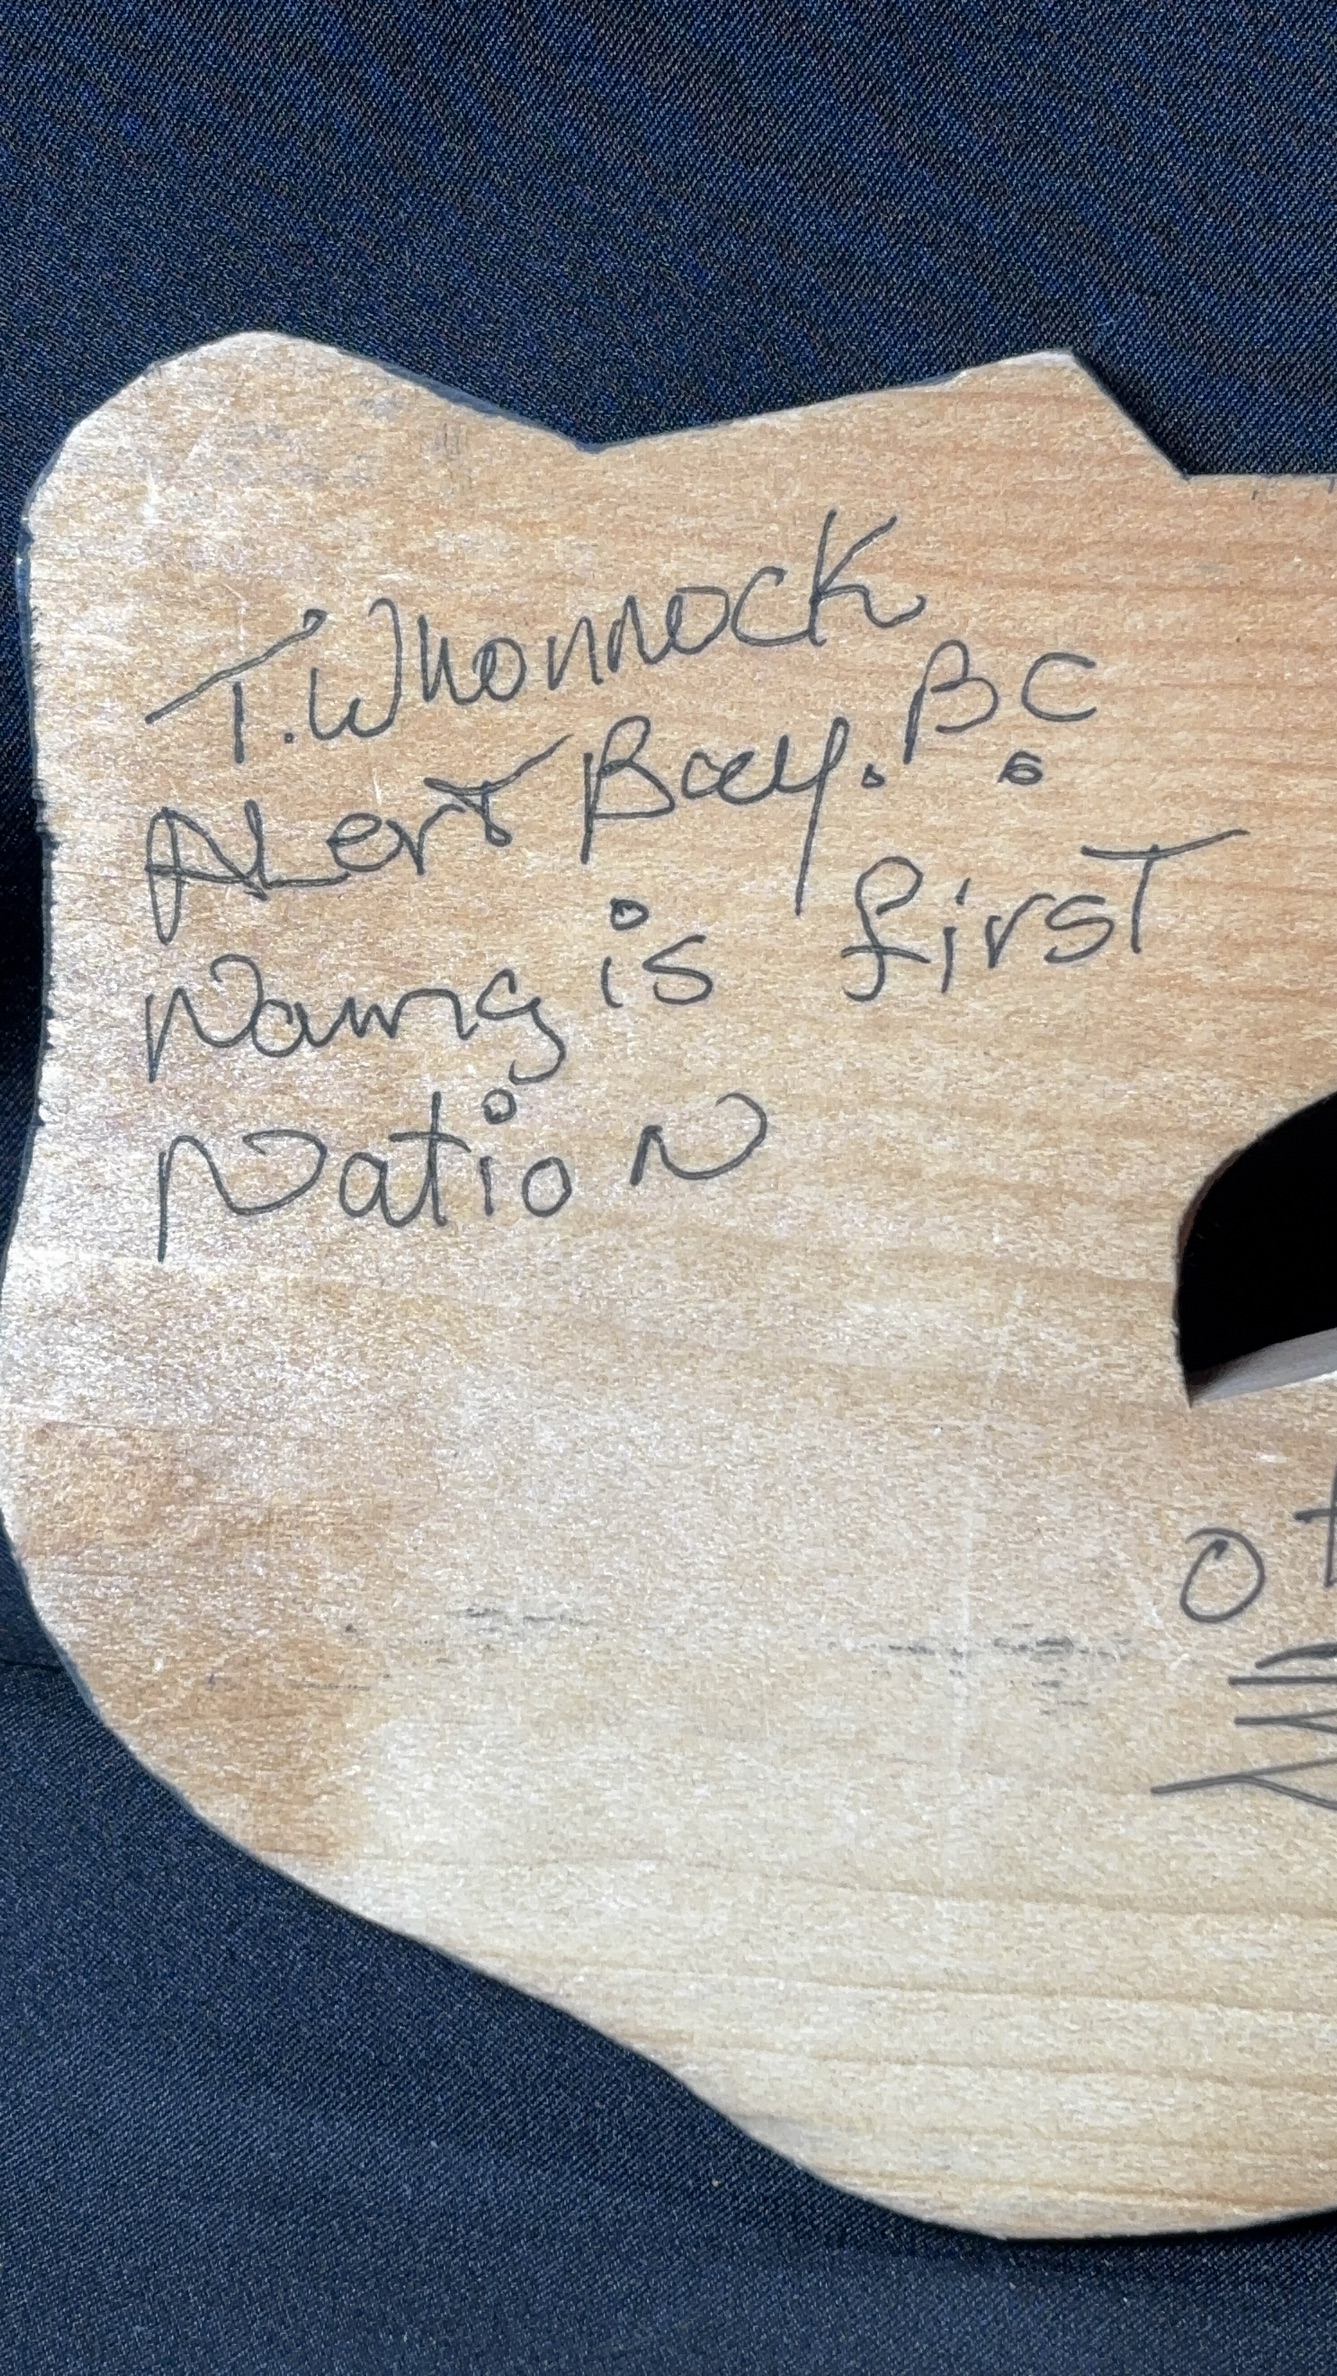 T. Whonnock
ALerT Bay. B.C
Namg is firsT
NatioN